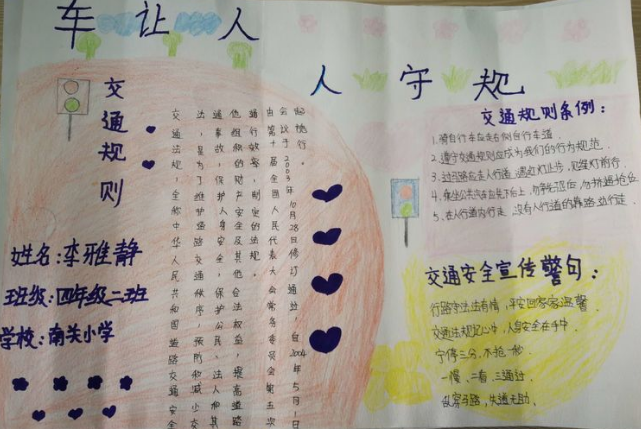 车让人
人守规
交通规则
姓名:李雅静
班级:四年级二班
学校:南关小学
交通法规,全称中华人民共和国道路交通安全
法,是为了维护道路交通秩序,预防和减少交
通事故,保护人身安全,保护公民、法人和其
他组织的财产安全及其他合法权益,提高道路
通行效率,制定的法规。
由第十届全国人民代表大会常务委员会第五次
会议于2003年10月28日修订通过,自2004年5月1日
起施行。
交通规则条例:
1.骑自行车应走右侧自行车道.
2.遵守交通规则应成为我们的行为规范.
3.过马路应走人行道,遇红灯止步,见绿灯前行.
4.乘坐公共汽车应先下后上,勿翻越后,勿挤逼抢位
5.在人行道内行走,没有人行道的靠路边行走.
交通安全宣传警句:
行路守法法有情,平安回家家温馨
交通法规记心中,人身安全在手中
宁停三分,不抢一秒.
一慢、二看、三通过.
乱穿马路,失道无助.